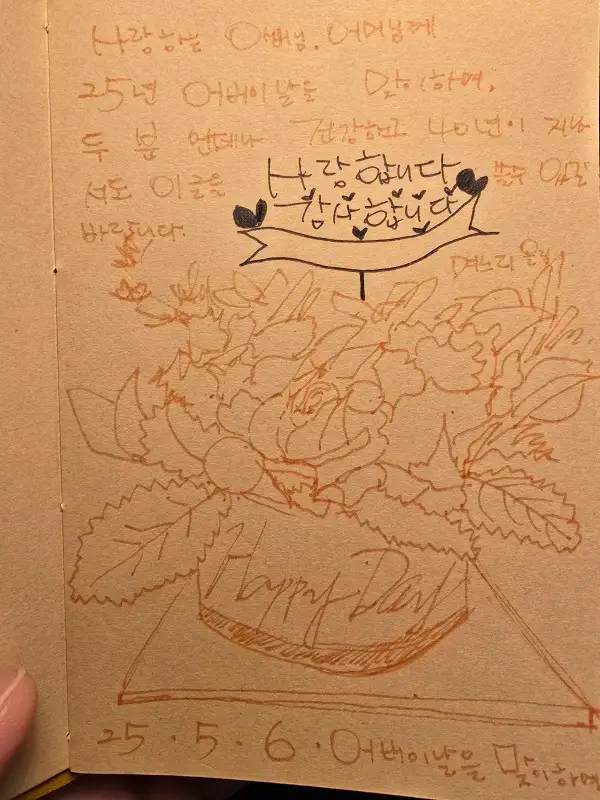 사랑하는 아버님. 어머님께
25년 어버이날을 맞이하여,
두 분 언제나 건강하고 40년이 지나
서도 이글을 볼수 있길
바랍니다.
사랑합니다
감사합니다
며느리 올림
Happy Day
25. 5. 6. 어버이날을 맞이하며